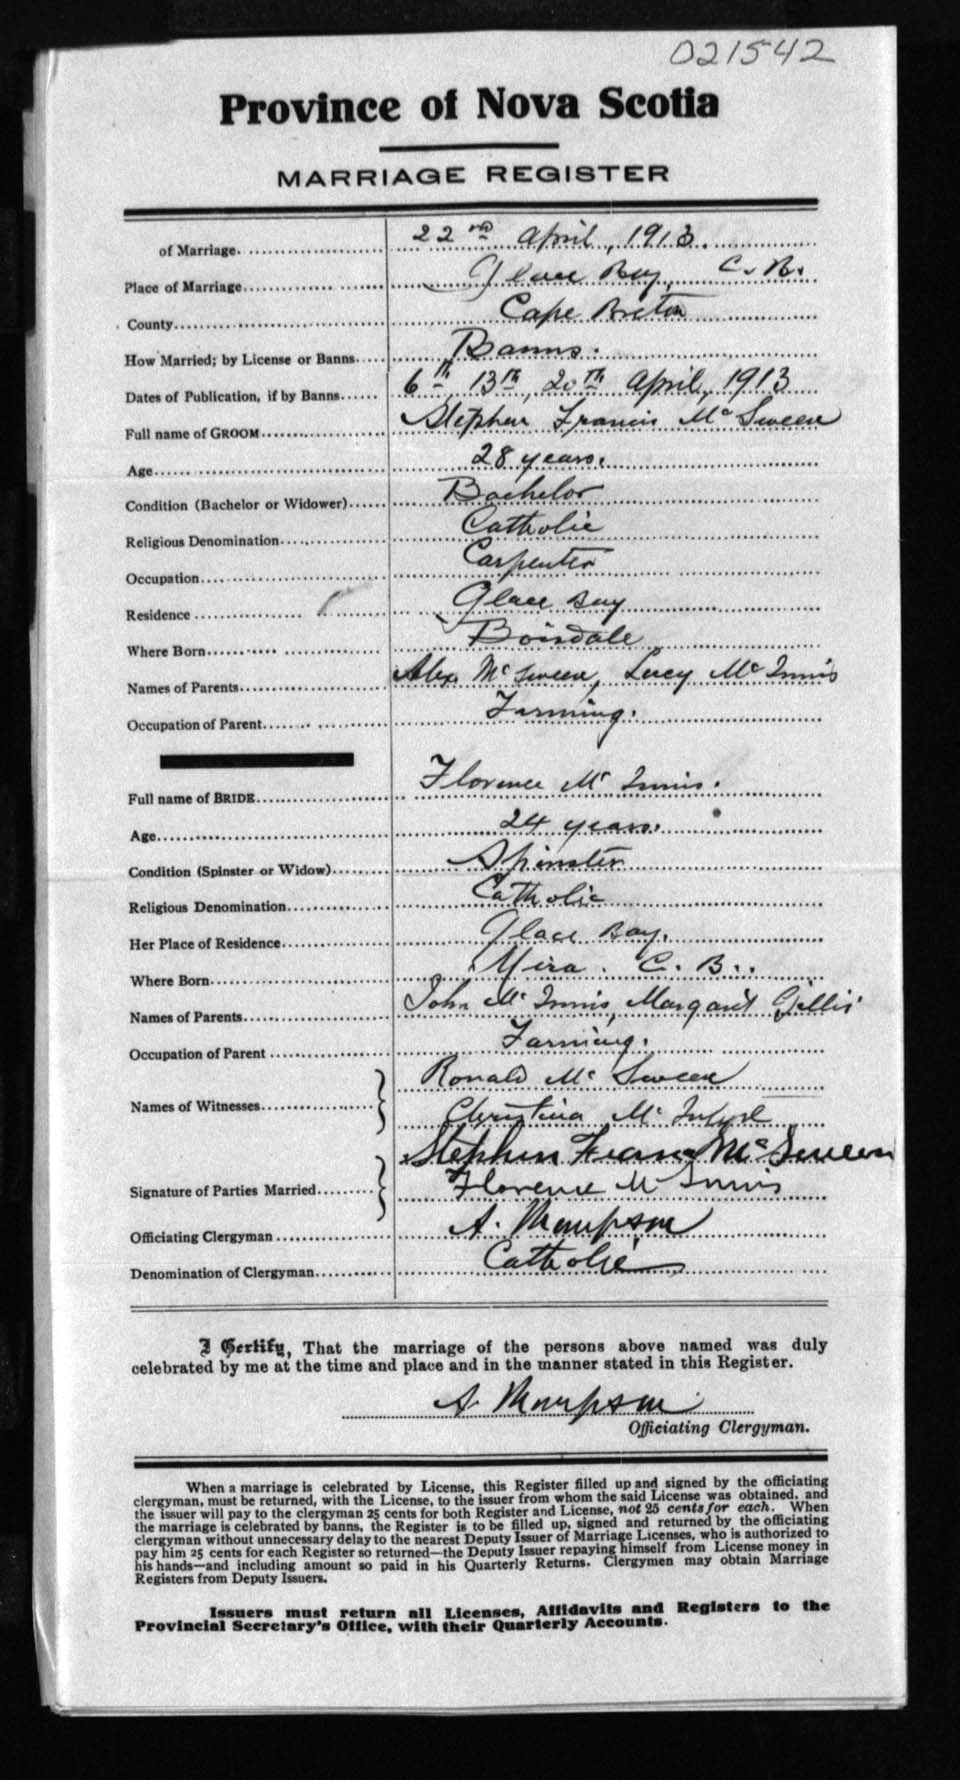 021542
Province of Nova Scotia
MARRIAGE REGISTER
of Marriage 22nd April, 1913.
Place of Marriage Glace Bay, C. B.
County Cape Breton
How Married; by License or Banns Banns.
Dates of Publication, if by Banns 6th, 13th, 20th April, 1913
Full name of GROOM Stephen Francis Mc Sween
Age 28 years.
Condition (Bachelor or Widower) Bachelor
Religious Denomination Catholic
Occupation Carpenter
Residence Glace Bay
Where Born Boisdale
Names of Parents Alex. Mc Sween, Lucy Mc Innis
Occupation of Parent Farming.
Full name of BRIDE Florence Mc Innis.
Age 24 years.
Condition (Spinster or Widow) Spinster
Religious Denomination Catholic
Her Place of Residence Glace Bay.
Where Born Mira. C. B.
Names of Parents John Mc Innis, Margaret Gillis
Occupation of Parent Farming.
Names of Witnesses Ronald Mc Sween
Christina Mc Intyre
Signature of Parties Married Stephen Francis Mc Sween
Florence Mc Innis
Officiating Clergyman A. Thompson
Denomination of Clergyman Catholic
I Certify, That the marriage of the persons above named was duly
celebrated by me at the time and place and in the manner stated in this Register.
A. Thompson
Officiating Clergyman.
When a marriage is celebrated by License, this Register filled up and signed by the officiating
clergyman, must be returned, with the License, to the issuer from whom the said License was obtained, and
the issuer will pay to the clergyman 25 cents for both Register and License, not 25 cents for each. When
the marriage is celebrated by banns, the Register is to be filled up, signed and returned by the officiating
clergyman without unnecessary delay to the nearest Deputy Issuer of Marriage Licenses, who is authorized to
pay him 25 cents for each Register so returned—the Deputy Issuer repaying himself from License money in
his hands—and including amount so paid in his Quarterly Returns. Clergymen may obtain Marriage
Registers from Deputy Issuers.
Issuers must return all Licenses, Affidavits and Registers to the
Provincial Secretary's Office, with their Quarterly Accounts.